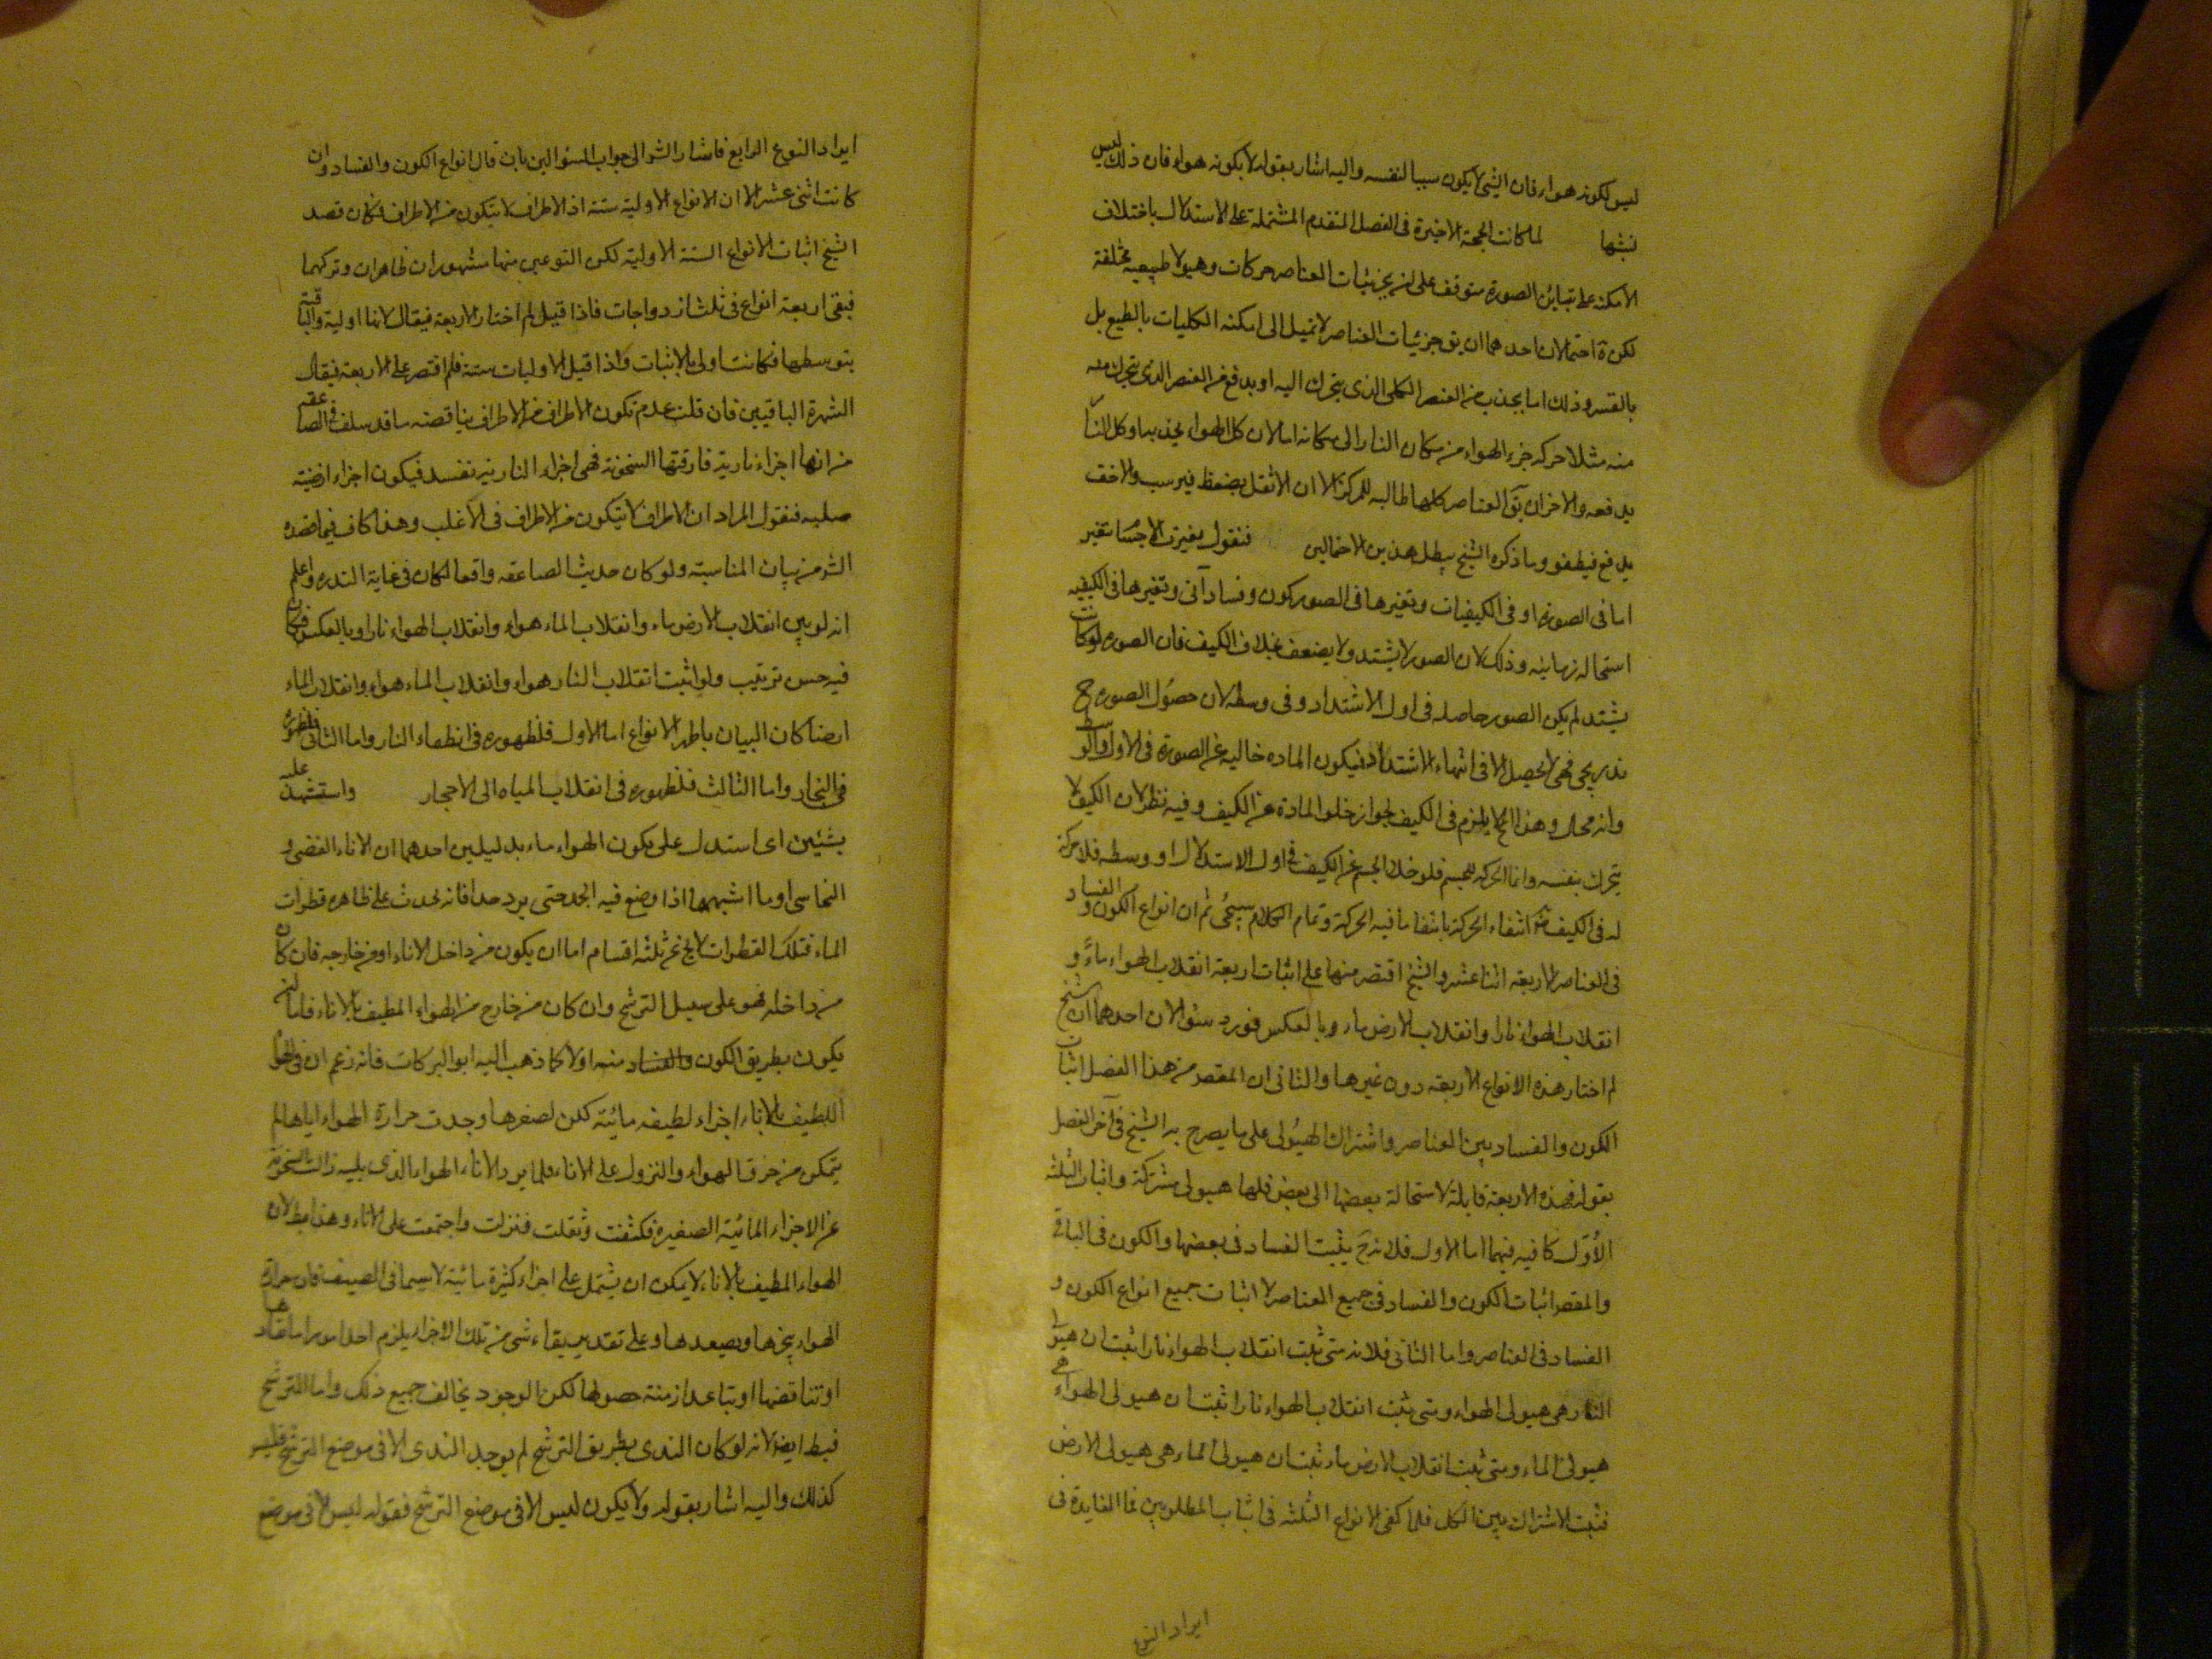 ليس لكونه هواء فان الشئ لا يكون سببا لنفسه واليه اشار بقوله لا بكونه هواء فان ذلك ليس
لما كانت الحجة الاخيرة فى الفصل المتقدم المشتملة على الاستدلال باختلاف
الامكنة على تباين الصورة متوقف على ان بجزئيات العناصر حركات وميولا طبيعيه مختلفة
لكن ثمة احتمالان احدهما ان يق جزئيات العناصر لا تميل الى امكنة الكليات بالطبع بل
بالقسر وذلك اما بجذب من العنصر الكلى الذى يتحرك اليه او بدفع من العنصر الذى يتحرك منه
منه مثلا حركه جزء الهواء من مكان النار الى مكانه اما لان كل الهواء يجذبها وكل النار
يدفعه والاخر ان يق العناصر كلها طالبه للمركز الا ان الاثقل يضغط فيرسب والاخف
يدفع فيطفو وما ذكره الشيخ يبطل هذين الاحتمالين فنقول تغيرت الاجسا تغير
اما فى الصورة او فى الكيفيات وتغيرها فى الصور كون وفساد آنى وتغيرها فى الكيفيه
استحاله زمانيه وذلك لان الصور لا يشتد ولا يضعف بخلاف الكيف فان الصوره لو كانت
يشتد لم يكن الصور حاصله فى اول الاشتداد وفى وسطه لان حصول الصوره ح
تدريجى فهى لا يحصل الا فى انتهاء الاشتداد فيكون الماده خاليه عن الصورة فى الاول والوسط
وانه محال وهذا المح لا يلزم فى الكيف لجواز خلو المادة عن الكيف وفيه نظر لان الكيف لا
يتحرك بنفسه وانما الحركه للجسم فلو خلا الجسم عن الكيف فى اول الاستدلال او وسطه فلا حركة
له فى الكيف انتفاء الحركة بانتفا ما فيه الحركة وتمام الكلام سيجئ ثم ان انواع الكون والفساد
فى العناصر الاربعه اثنا عشر والشيخ اقتصر منها على اثبات اربعة انقلاب الهواء ماء و
انقلاب الهواء نارا وانقلاب الارض ماء وبالعكس فورد سئوالان احدهما ان الشيخ
لم اختار هذه الانواع الاربعه دون غيرها والثانى ان المقصر من هذا الفصل اثبات
الكون والفساد بين العناصر واشتراك الهيولى على ما يصرح به الشيخ فى آخر الفصل
بقوله فهذه الاربعة قابلة لاستحالة بعضها الى بعض فلها هيولى مشتركة واثبات الثلثه
الأول كافيه فيهما اما الاول فلانه ح يثبت الفساد فى بعضها والكون فى الباقى
والمقصر اثبات الكون والفساد فى جميع العناصر لا اثبات جميع انواع الكون و
الفساد فى العناصر واما الثانى فلانه متى ثبت انقلاب الهواء نارا ثبت ان هيولى
النار هى هيولى الهواء ومتى ثبت انقلاب الهواء نارا ثبت ان هيولى الهواء هى
هيولى الماء ومتى ثبت انقلاب الارض ماء ثبت ان هيولى الماء هى هيولى الارض
فثبت الاشتراك بين الكل فلما كفى الانواع الثلثه فى اثبات المطلوبين فما الفايدة فى
ايراد النوع
ايراد النوع الرابع فاشار الشر الى جواب السئوالين بان قال انواع الكون والفساد وان
كانت اثنى عشر الا ان الانواع الاوليه ستة اذ الاطراف لا يتكون من الاطراف فكان قصد
الشيخ اثبات الانواع الستة الاولية لكن النوعين منها مشهوران ظاهران وتركهما
فبقى اربعة انواع فى ثلث ازدواجات فاذا قيل لم اختار الاربعة فيقال لانها اولية والباقية
بتوسطها فكانت اولى بالاثبات واذا قيل الاوليات ستة فلم اقتصر على الاربعة فيقال
الشهرة الباقيين فان قلت عدم تكون الاطراف من الاطراف يناقضه ما قد سلف فى الصاعقه
من انها اجزاء نارية فارقتها السخونة فهى اجزاء النارية تفسد فيكون اجزاء ارضية
صلبه فنقول المراد ان الاطراف لا يتكون من الاطراف فى الاغلب وهذا كاف فيما قصده
الشر من بيان المناسبة ولو كان حديث الصاعقه واقعا لكان فى غاية الندره واعلم
انه لو بين انقلاب الارض ماء وانقلاب الماء هواء وانقلاب الهواء نارا وبالعكس فكان
فيه حسن ترتيب ولو اثبت انقلاب النار هواء وانقلاب الماء هواء وانقلاب الماء
ارضا كان البيان باظهر الانواع اما الاول فلظهوره فى انطفاء النار واما الثانى فلظهوره
فى البخار واما الثالث فلظهوره فى انقلاب المياه الى الاحجار واستشهد عليه
بشيئين اى استدل على يكون الهواء ماء بدليلين احدهما ان الاناء الفضى و
النحاسى او ما اشبههما اذا وضع فيه الجمد حتى برد جدا فانه يحدث على ظاهره قطرات
الماء فتلك القطرات لا يخ عن ثلثه اقسام اما ان يكون من داخل الاناء او من خارجه فان كان
من داخله فهو على سبيل الترشح وان كان من خارج من الهواء المطيف بالاناء فاما ان
يكون بطريق الكون والفساد منه او لا كما ذهب اليه ابو البركات فانه زعم ان فى الهواء
المطيف بالاناء اجزاء لطيفه مائية لكن لصغرها وجدت حرارة الهواء اياها لم
يتمكن من خرق الهواء والنزول على الاناء فلما برد الاناء الهواء الذى يليه زالت السخونة
عن الاجزاء المائية الصغيره فكثفت وثقلت فنزلت واجتمعت على الاناء وهذا بط لان
الهواء المطيف بالاناء لا يمكن ان يشتمل على اجزاء كثيرة مائية لا سيما فى الصيف فان حرارة
الهواء يبخرها ويصعدها وعلى تقدير بقاء شى من تلك الاجزاء يلزم احد امور اما نفادها
او تناقضها او تباعد ازمنة حصولها لكن الوجود يخالف جميع ذلك واما الترشح
فبط ايضا لانه لو كان الندى بطريق الترشح لم يوجد الندى الا فى موضع الترشح فليس
كذلك واليه اشار بقوله ولا يكون ليس الا فى موضع الترشح فقوله ليس الا فى موضع